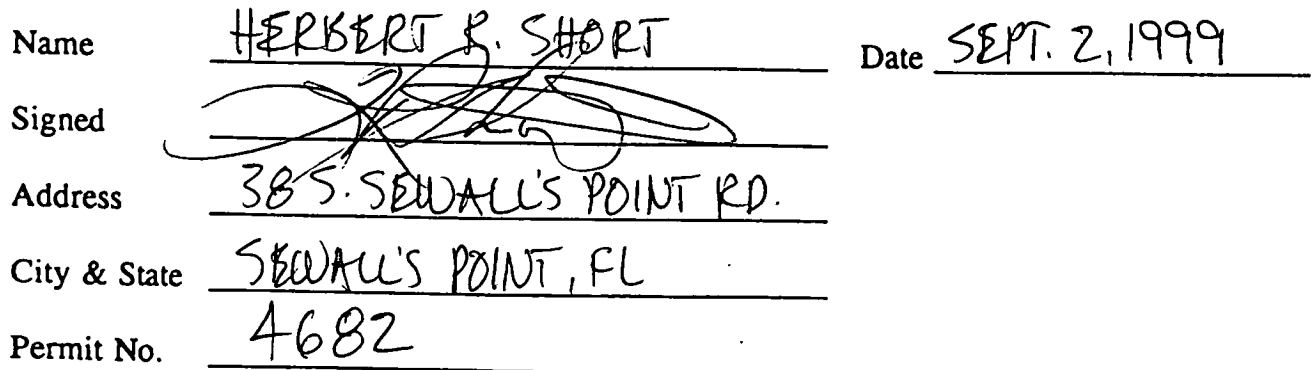 Name HERBERT R. SHORT Date SEPT. 2, 1999
Signed
Address 38 S. SEWALL'S POINT RD.
City & State SEWALL'S POINT, FL
Permit No. 4682